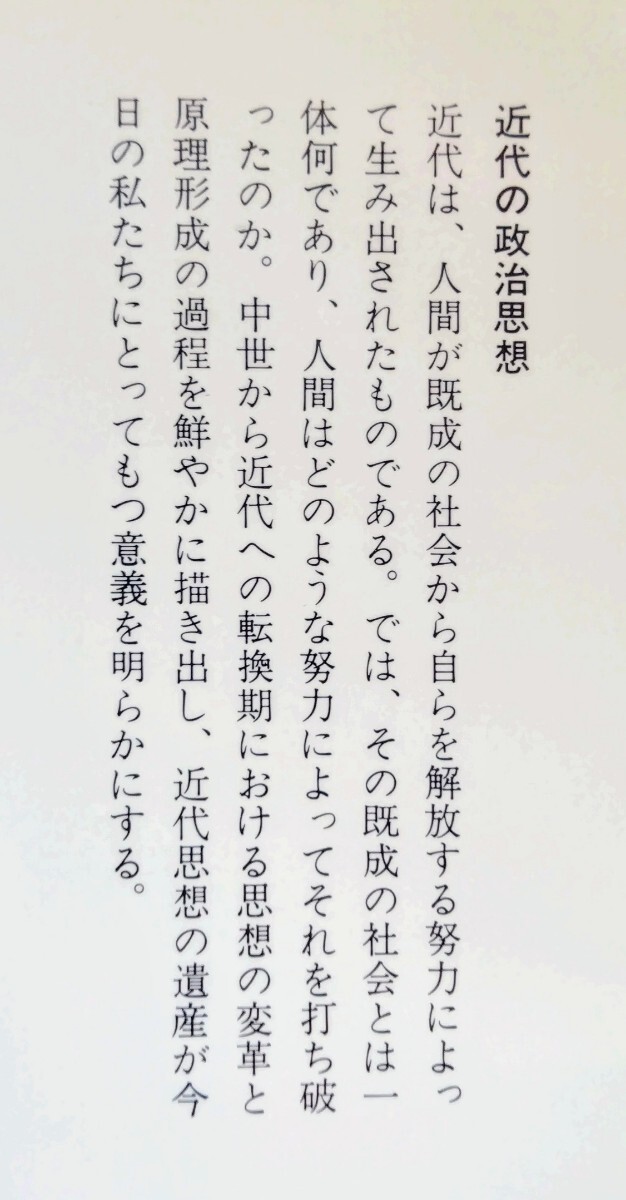 近代の政治思想
近代は、人間が既成の社会から自らを解放する努力によっ
て生み出されたものである。では、その既成の社会とは一
体何であり、人間はどのような努力によってそれを打ち破
ったのか。中世から近代への転換期における思想の変革と
原理形成の過程を鮮やかに描き出し、近代思想の遺産が今
日の私たちにとってもつ意義を明らかにする。